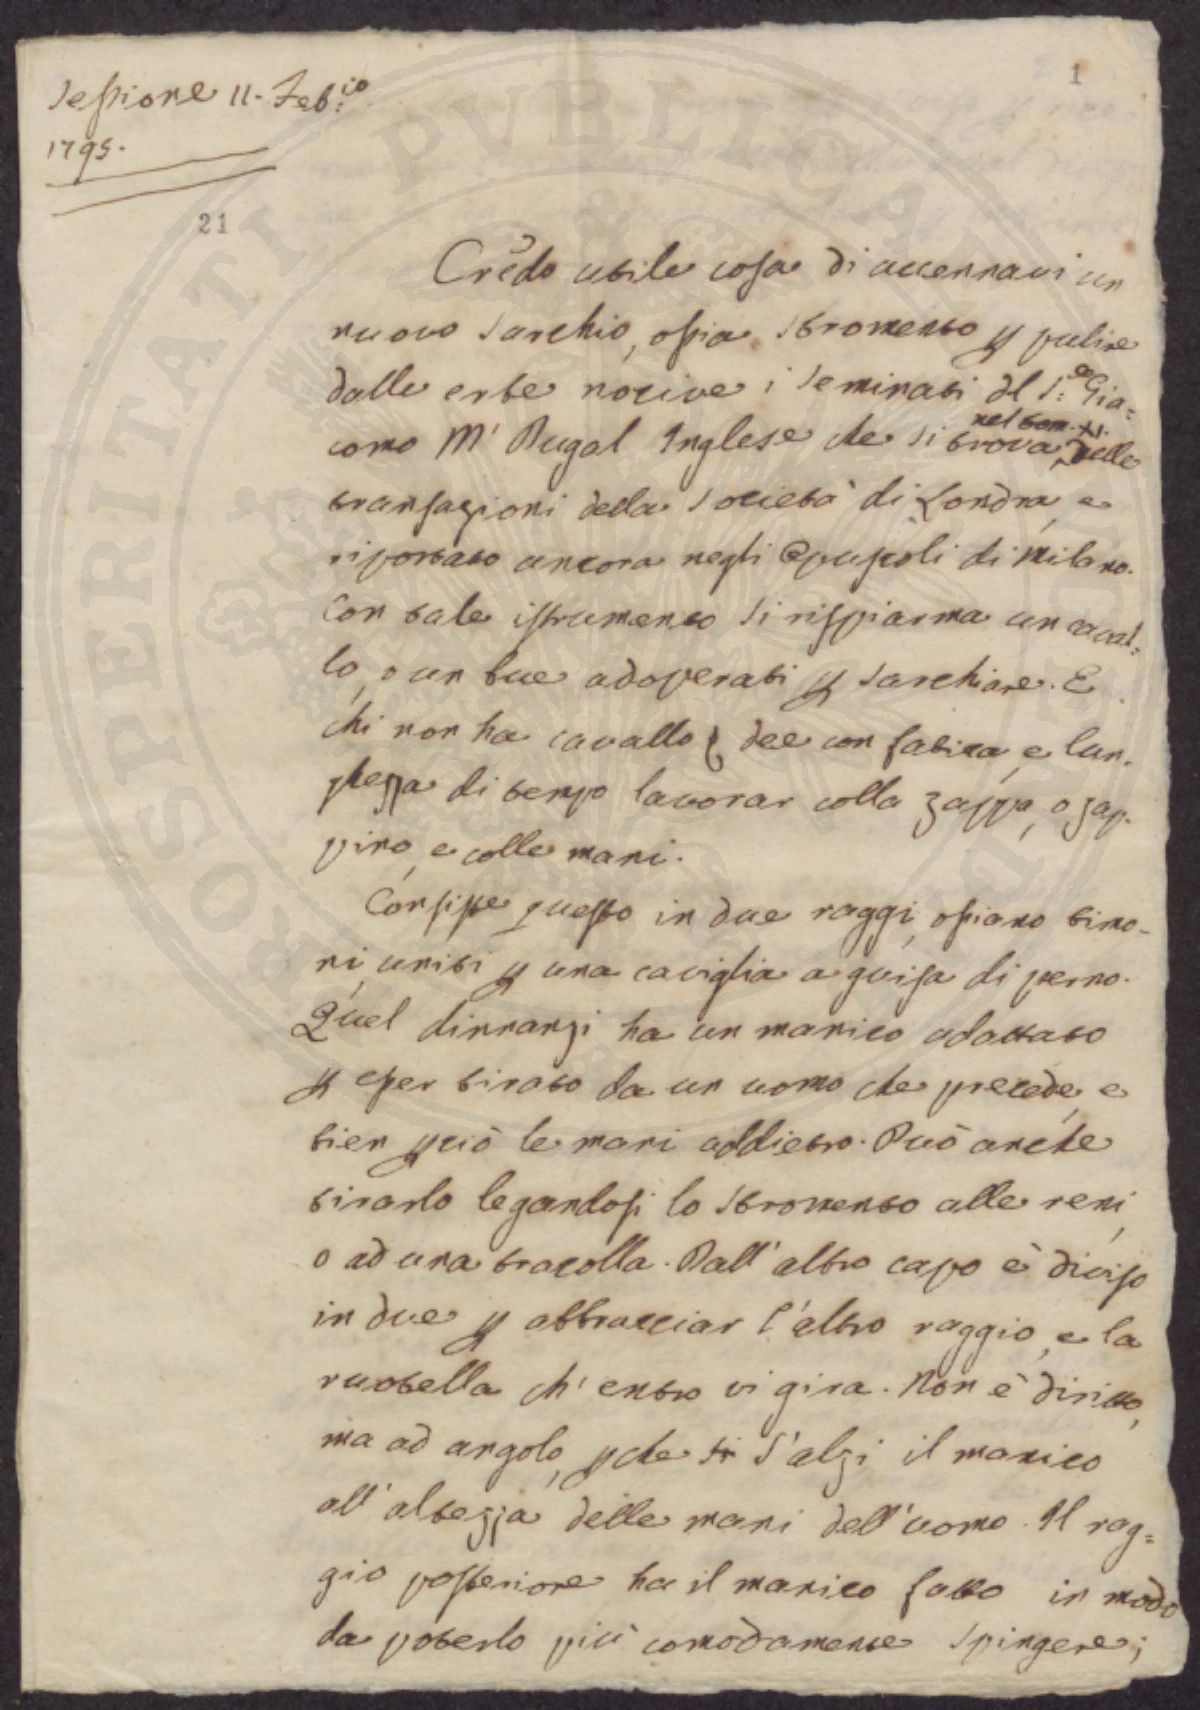 Sessione 11. Feb:io
1795.
1
21
Credo utile cosa di accennarvi un
nuovo sarchio, ossia stromento p pulire
dalle erbe nocive i seminati del S:r Gia=
como Mc Dugal Inglese che si trova nel tom. XI. nelle
transazioni della Società di Londra, e
riportato ancora negli Opuscoli di Milano.
Con tale istrumento si rispiarma un caval=
lo, o un bue adoperati p sarchiare. E
chi non ha cavallo dee con fatica, e lun=
ghezza di tempo lavorar colla zappa, o zap=
pino, e colle mani.
Consiste questo in due raggi, ossiano timo-
ni, uniti p una caviglia a guisa di perno.
Quel dinnanzi ha un manico adattato
p esser tirato da un uomo che precede, e
tien pciò le mani addietro. Può anche
tirarlo legandosi lo stromento alle reni,
o ad una tracolla. Dall' altro capo è diviso
in due p abbracciar l'altro raggio, e la
ruotella ch' entro vi gira. Non è diritto,
ma ad angolo, pche si s'alzi il manico
all' altezza delle mani dell' uomo. Il rag=
gio posteriore ha il manico fatto in modo
da poterlo più comodamente spingere;
PROSPERITATI PUBLICAE